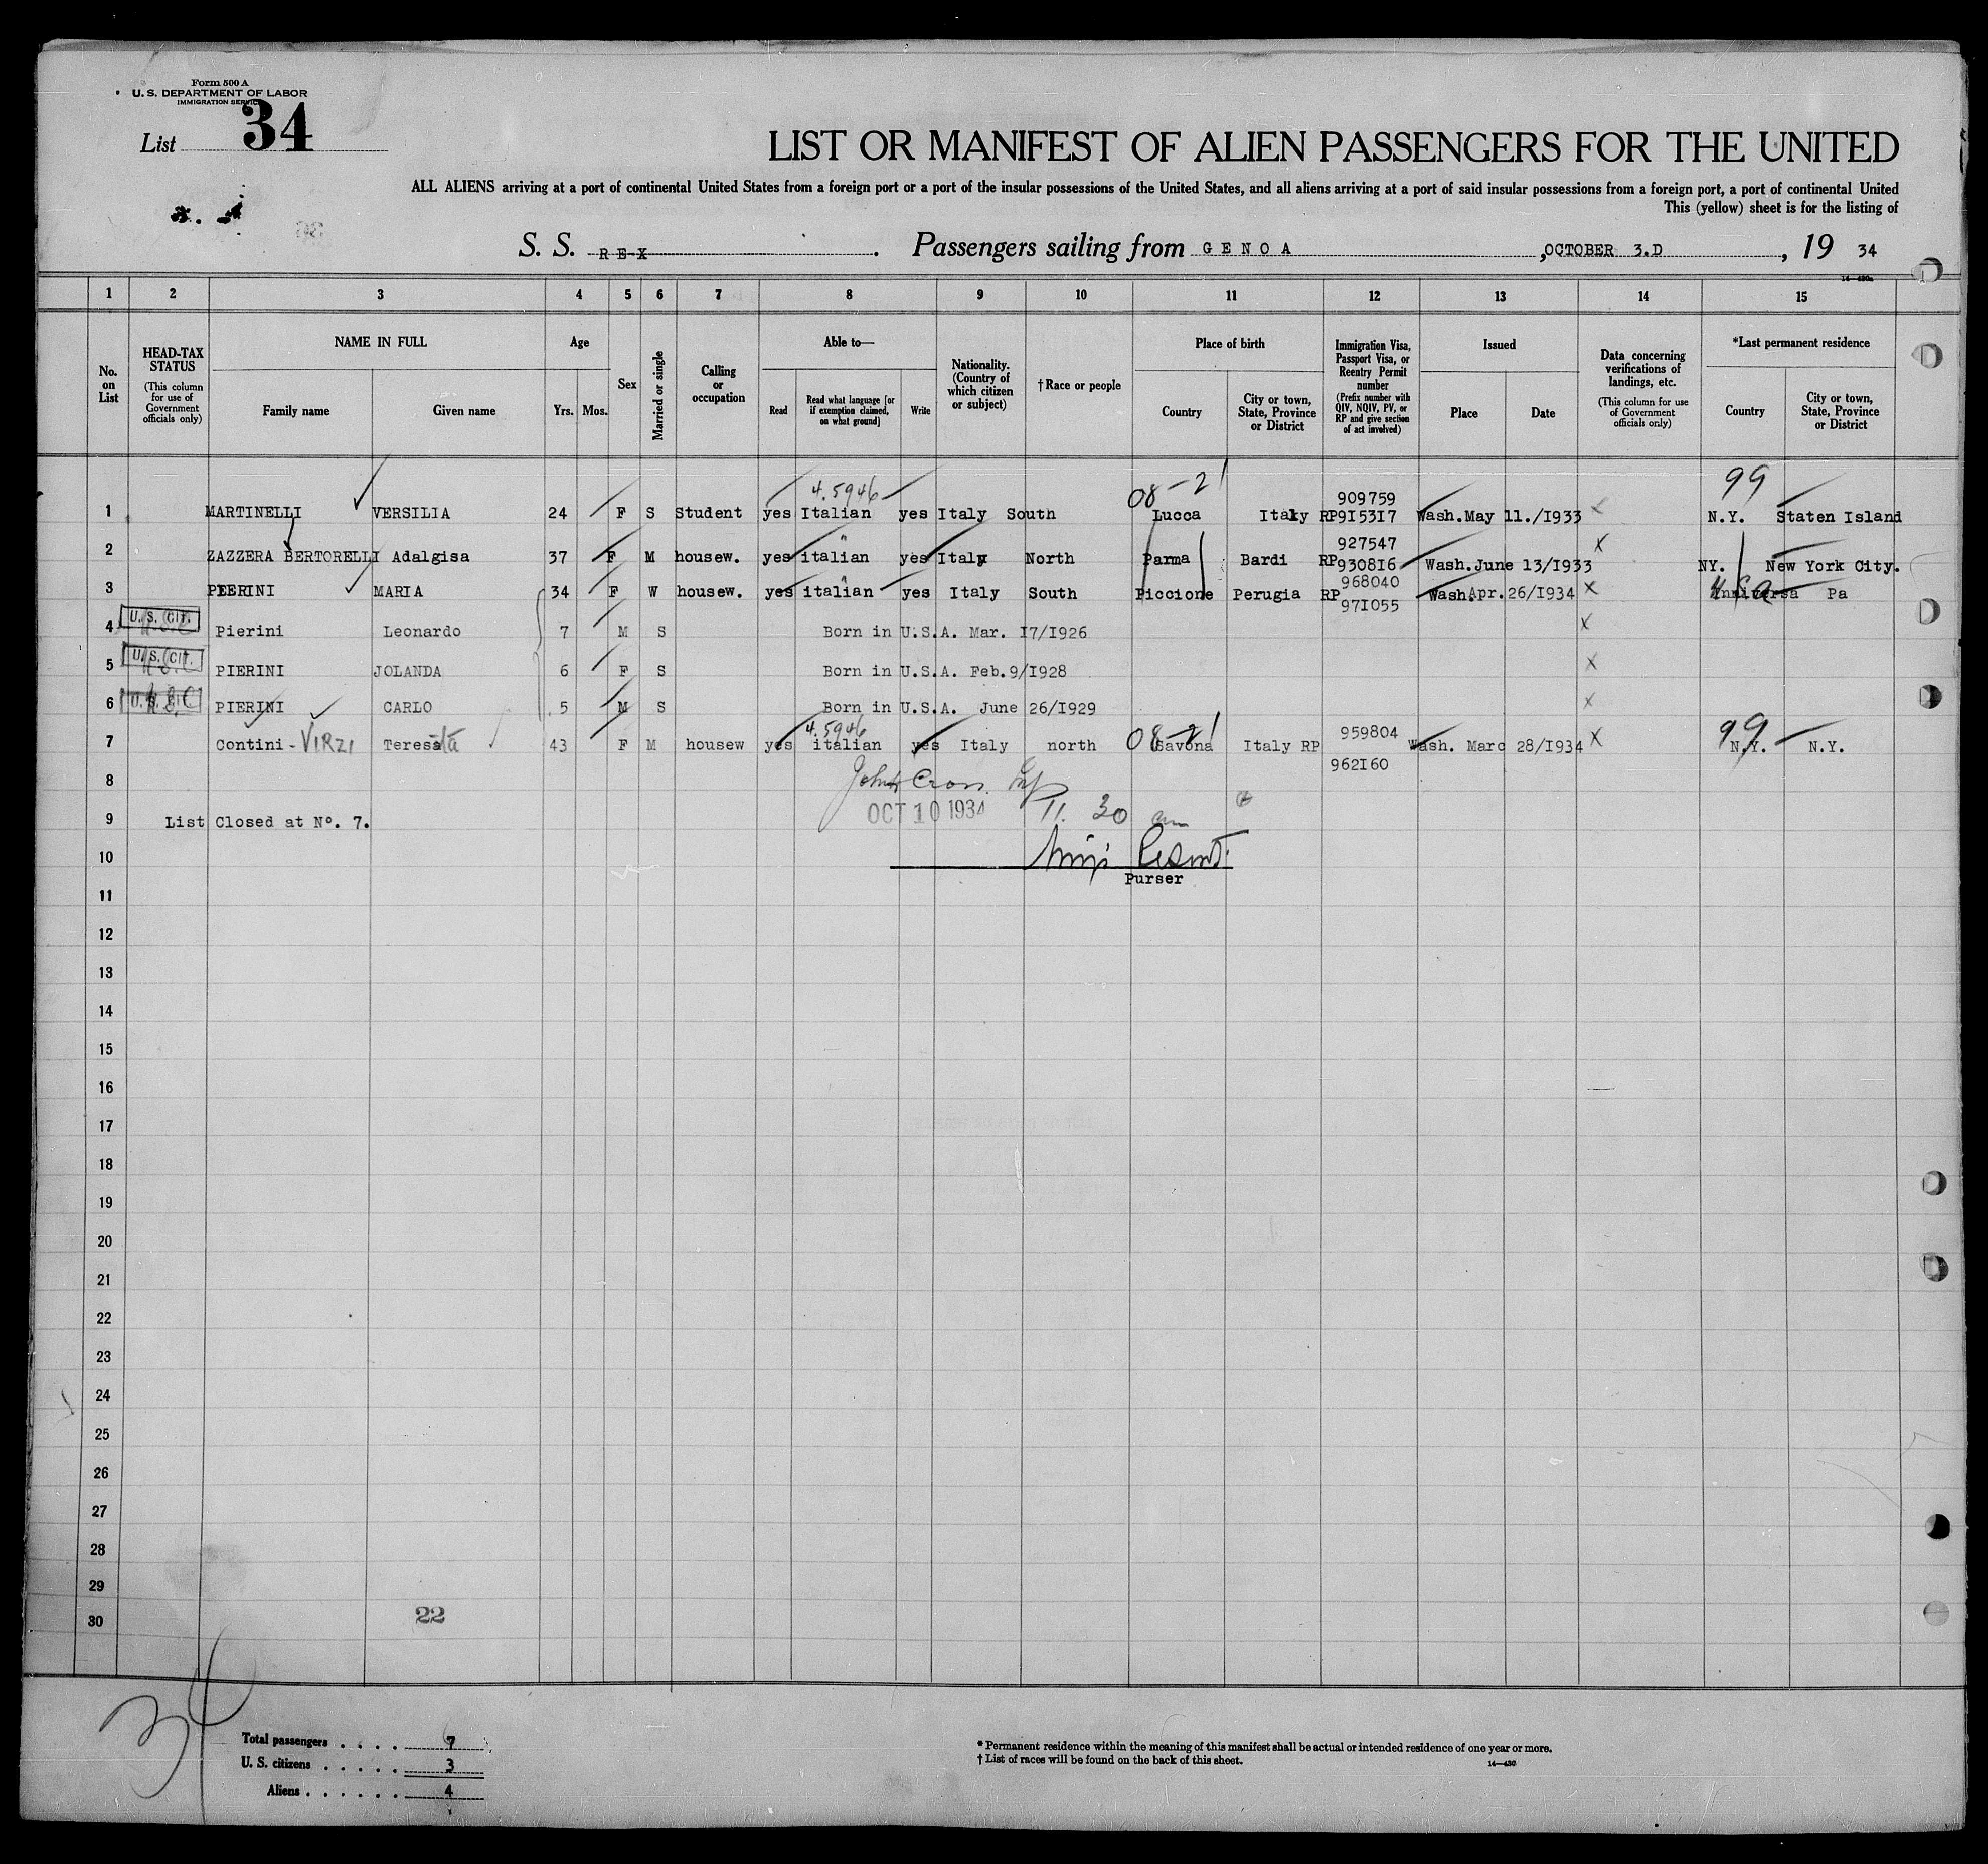 Form 500 A
U. S. DEPARTMENT OF LABOR
IMMIGRATION SERVICE
List 34
LIST OR MANIFEST OF ALIEN PASSENGERS FOR THE UNITED
ALL ALIENS arriving at a port of continental United States from a foreign port or a port of the insular possessions of the United States, and all aliens arriving at a port of said insular possessions from a foreign port, a port of continental United
This (yellow) sheet is for the listing of
S. S. REX. Passengers sailing from GENOA, OCTOBER 3.D, 19 34
1 2 3 4 5 6 7 8 9 10 11 12 13 14 15
No. on List
HEAD-TAX STATUS (This column for use of Government officials only)
NAME IN FULL
Family name Given name
Age
Yrs. Mos.
Sex
Married or single
Calling or occupation
Able to—
Read Read what language [or if exemption claimed, on what ground] Write
Nationality. (Country of which citizen or subject)
†Race or people
Place of birth
Country City or town, State, Province or District
Immigration Visa, Passport Visa, or Reentry Permit number (Prefix number with QIV, NQIV, PV, or RP and give section of act involved)
Issued
Place Date
Data concerning verifications of landings, etc. (This column for use of Government officials only)
*Last permanent residence
Country City or town, State, Province or District
4.5946 08-21 909759 99
1 MARTINELLI VERSILIA 24 F S Student yes Italian yes Italy South Lucca Italy RP9I53I7 Wash.May 11./1933 N.Y. Staten Island
927547
2 ZAZZERA BERTORELLI Adalgisa 37 F M housew. yes italian yes Italy North Parma Bardi RP9308I6 Wash.June 13/1933 NY. New York City.
968040
3 PIERINI MARIA 34 F W housew. yes italian yes Italy South Piccione Perugia RP Wash.Apr.26/1934 Pa
97I055
U. S. CIT.
4 Pierini Leonardo 7 M S Born in U.S.A. Mar. I7/I926
U. S. CIT.
5 PIERINI JOLANDA 6 F S Born in U.S.A. Feb.9/I928
U. S. CIT.
6 PIERINI CARLO 5 M S Born in U.S.A. June 26/I929
4.5946
7 Contini - VIRZI Teresa 43 F M housew yes italian yes Italy north 08-21 Savona Italy RP 959804 Wash. Marc 28/I934 99 N.Y. N.Y.
962I60
8
OCT 10 1934 11. 30 am
9 List Closed at No. 7.
10
Purser
11
12
13
14
15
16
17
18
19
20
21
22
23
24
25
26
27
28
29
30
22
34
Total passengers . . . . 7
U. S. citizens . . . . . 3
Aliens . . . . . . 4
* Permanent residence within the meaning of this manifest shall be actual or intended residence of one year or more.
† List of races will be found on the back of this sheet.
14—430